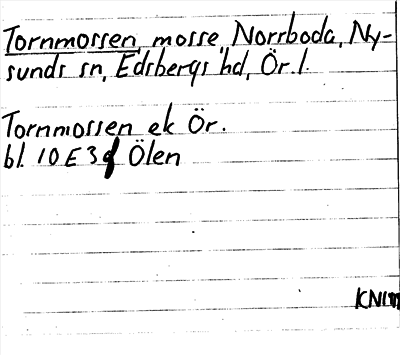 Tornmossen, mosse, Norrboda, Ny-
sunds sn, Edsbergs hd, Ör. l.
Tornmossen ek Ör.
bl. 10 E 3 Ölen